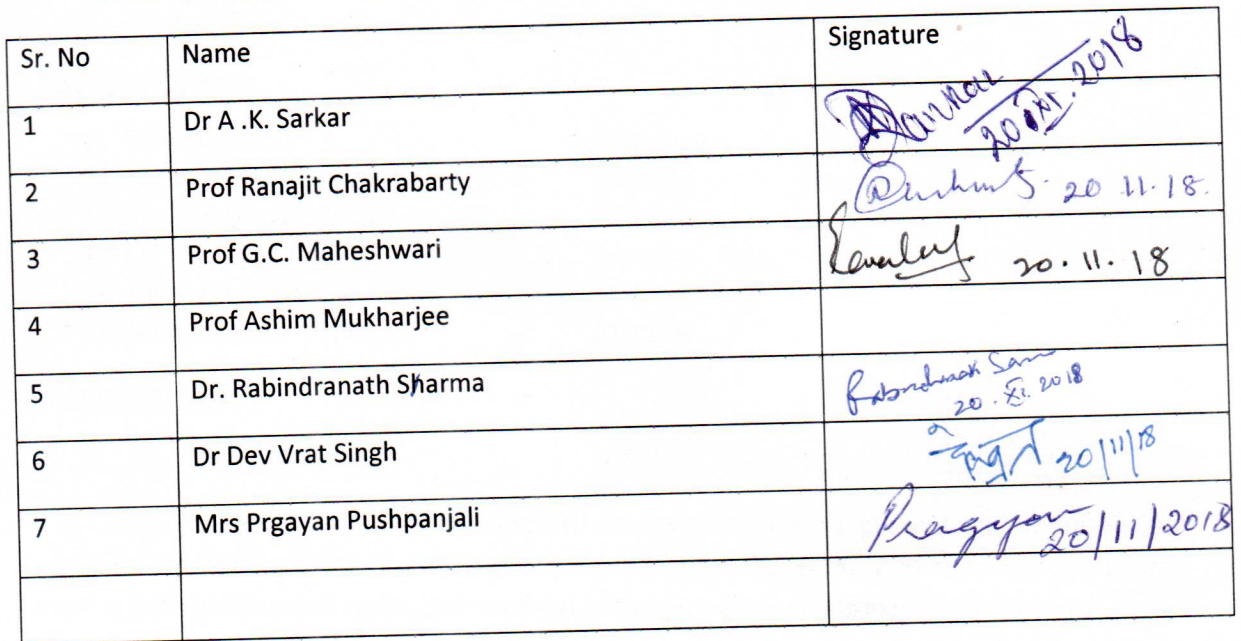 Sr. No Name Signature
1 Dr A .K. Sarkar Sarkar
20.XI.2018
2 Prof Ranajit Chakrabarty 20.11.18.
3 Prof G.C. Maheshwari 20.11.18
4 Prof Ashim Mukharjee
5 Dr. Rabindranath Sharma Rabindranath Sarma
20.XI.2018
6 Dr Dev Vrat Singh देवव्रत 20/11/18
7 Mrs Prgayan Pushpanjali Pragyan
20/11/2018